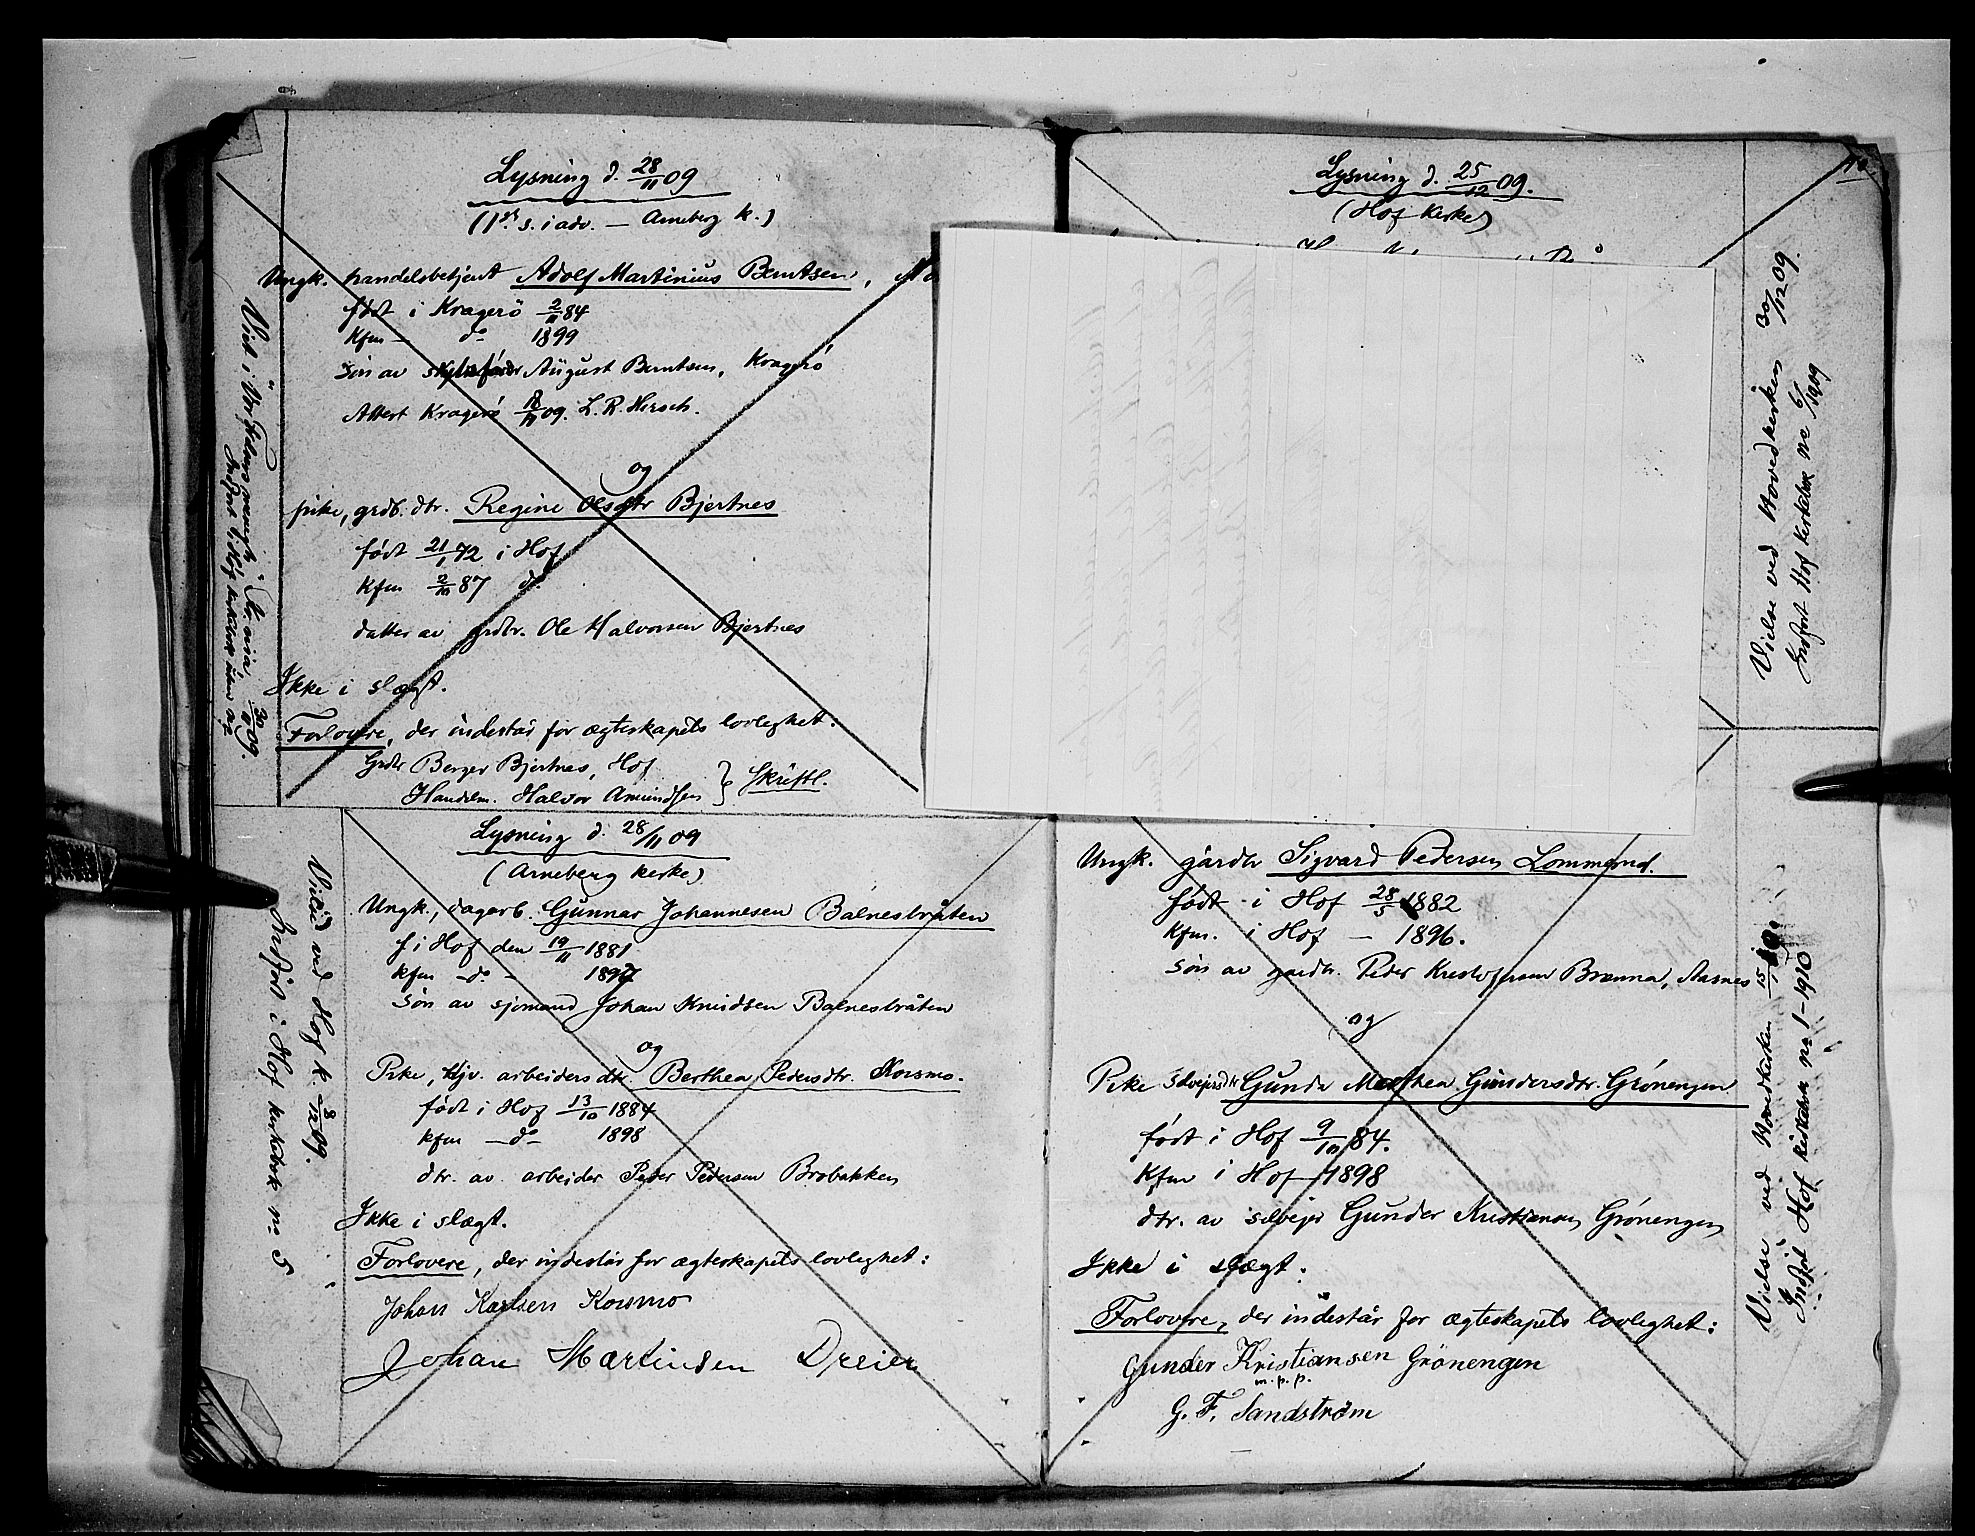 Lysning d. 28/11 09
(1ste s. i adv. — Arneberg k.)
Ungk. handelsbetjent Adolf Martinius Berntsen,
født i Kragerö 2/11 84
kfm — do 1899
søn av August Berntsen, Kragerö
Attest Kragerö 18/11 09. L. R. Hirsch.
og
pike, grdb. dtr. Regine Olsdtr Bjertnes
født 21/1 72 i Hof
kfm 2/10 87 do
datter av grdbr. Ole Halvorsen Bjertnes
Ikke i slægt.
Forlovere, der indestår for ægteskapets lovlighet:
Grdbr Berger Bjertnes, Hof
Handelsm. Halvor Amundsen } Skriftl.
Viet i Vor Frelsers menigh. i Kr.ania 30/11 09.
Indført i Hof kirkebok uten no
Lysning d. 28/11 09
(Arneberg kirke)
Ungk., dagarb. Gunnar Johannesen Balnesbråten
f i Hof den 19/11 1881
kfm — do — 1897
søn av sjømand Johan Knudsen Balnesbråten
og
Pike, arbeidersdtr. Berthea Pedersdtr. Kosmo.
født i Hof 13/10 1884
kfm — do — 1898
dtr. av arbeider Peder Pedersen Brobakken
Ikke i slægt.
Forlovere, der indestår for ægteskapets lovlighet:
Johan Karlsen Kosmo
Johan Martinsen Dreier
Vielse ved Hof k. 8/12 09.
Indført i Hof kirkebok no 5
Lysning d. 25/12 09.
(Hof kirke)
Vielse ved Hovedkirken 30/12 09.
Indført Hof kirkebok no 6/1909
Ungk. gårdbr Sigvard Pedersen Lommerud.
født i Hof 28/5 1882
kfm. i Hof — 1896.
søn av gårdbr. Peder Kristofersen Brenna, Aasnes
og
Pike selveiersdtr Gunda Mathea Gundersdtr. Grönengen
født i Hof 9/10 84.
kfm i Hof 1898
dtr. av selveier Gunder Kristiansen Grönengen
Ikke i slægt.
Forlovere, der indestår for ægteskapets lovlighet:
Gunder Kristiansen Grönengen
m. p. p.
G. F. Sandström
Vielse ved Hovedkirken
Indført Hof kirkebok no 1-1910